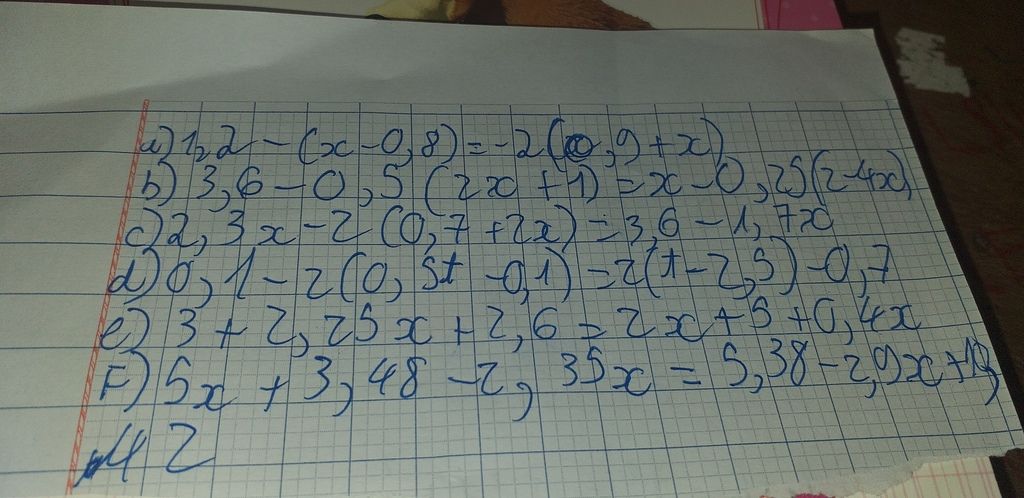 a) 1,2 - (x - 0,8) = -2(0,9 + x)
b) 3,6 - 0,5 (2x + 1) = x - 0,25(2-4x)
c) 2,3x - 2 (0,7 + 2x) = 3,6 - 1,7x
d) 0,1 - 2(0,5t - 0,1) = 2(t - 2,5) - 0,7
e) 3 + 2,25x + 2,6 = 2x + 5 + 0,4x
F) 5x + 3,48 - 2,35x = 5,38 - 2,9x +10,
42